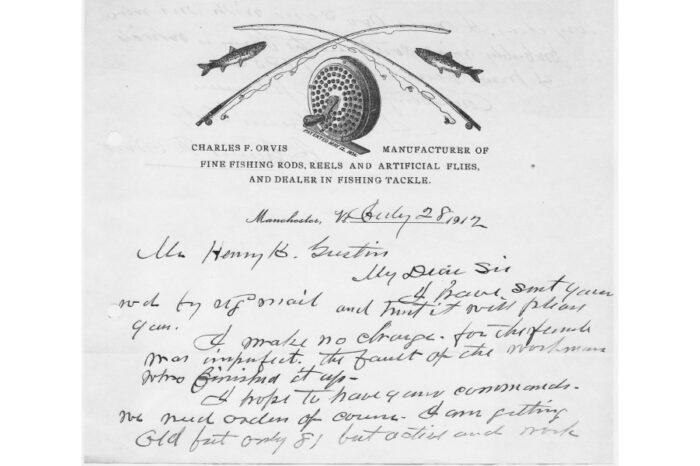 PATENTED MAY 12, 1874.
CHARLES F. ORVIS MANUFACTURER OF
FINE FISHING RODS, REELS AND ARTIFICIAL FLIES,
AND DEALER IN FISHING TACKLE.
Manchester, Vt July 28 1912
Mr Henry K. Gustin
My Dear Sir
I have sent your
rod by mail and trust it will please
you.
I make no charge. for the ferrule
was imperfect. the fault of the workman
who finished it up-
I hope to have your commands.
we need orders of course. I am getting
old but only 81 but active and work